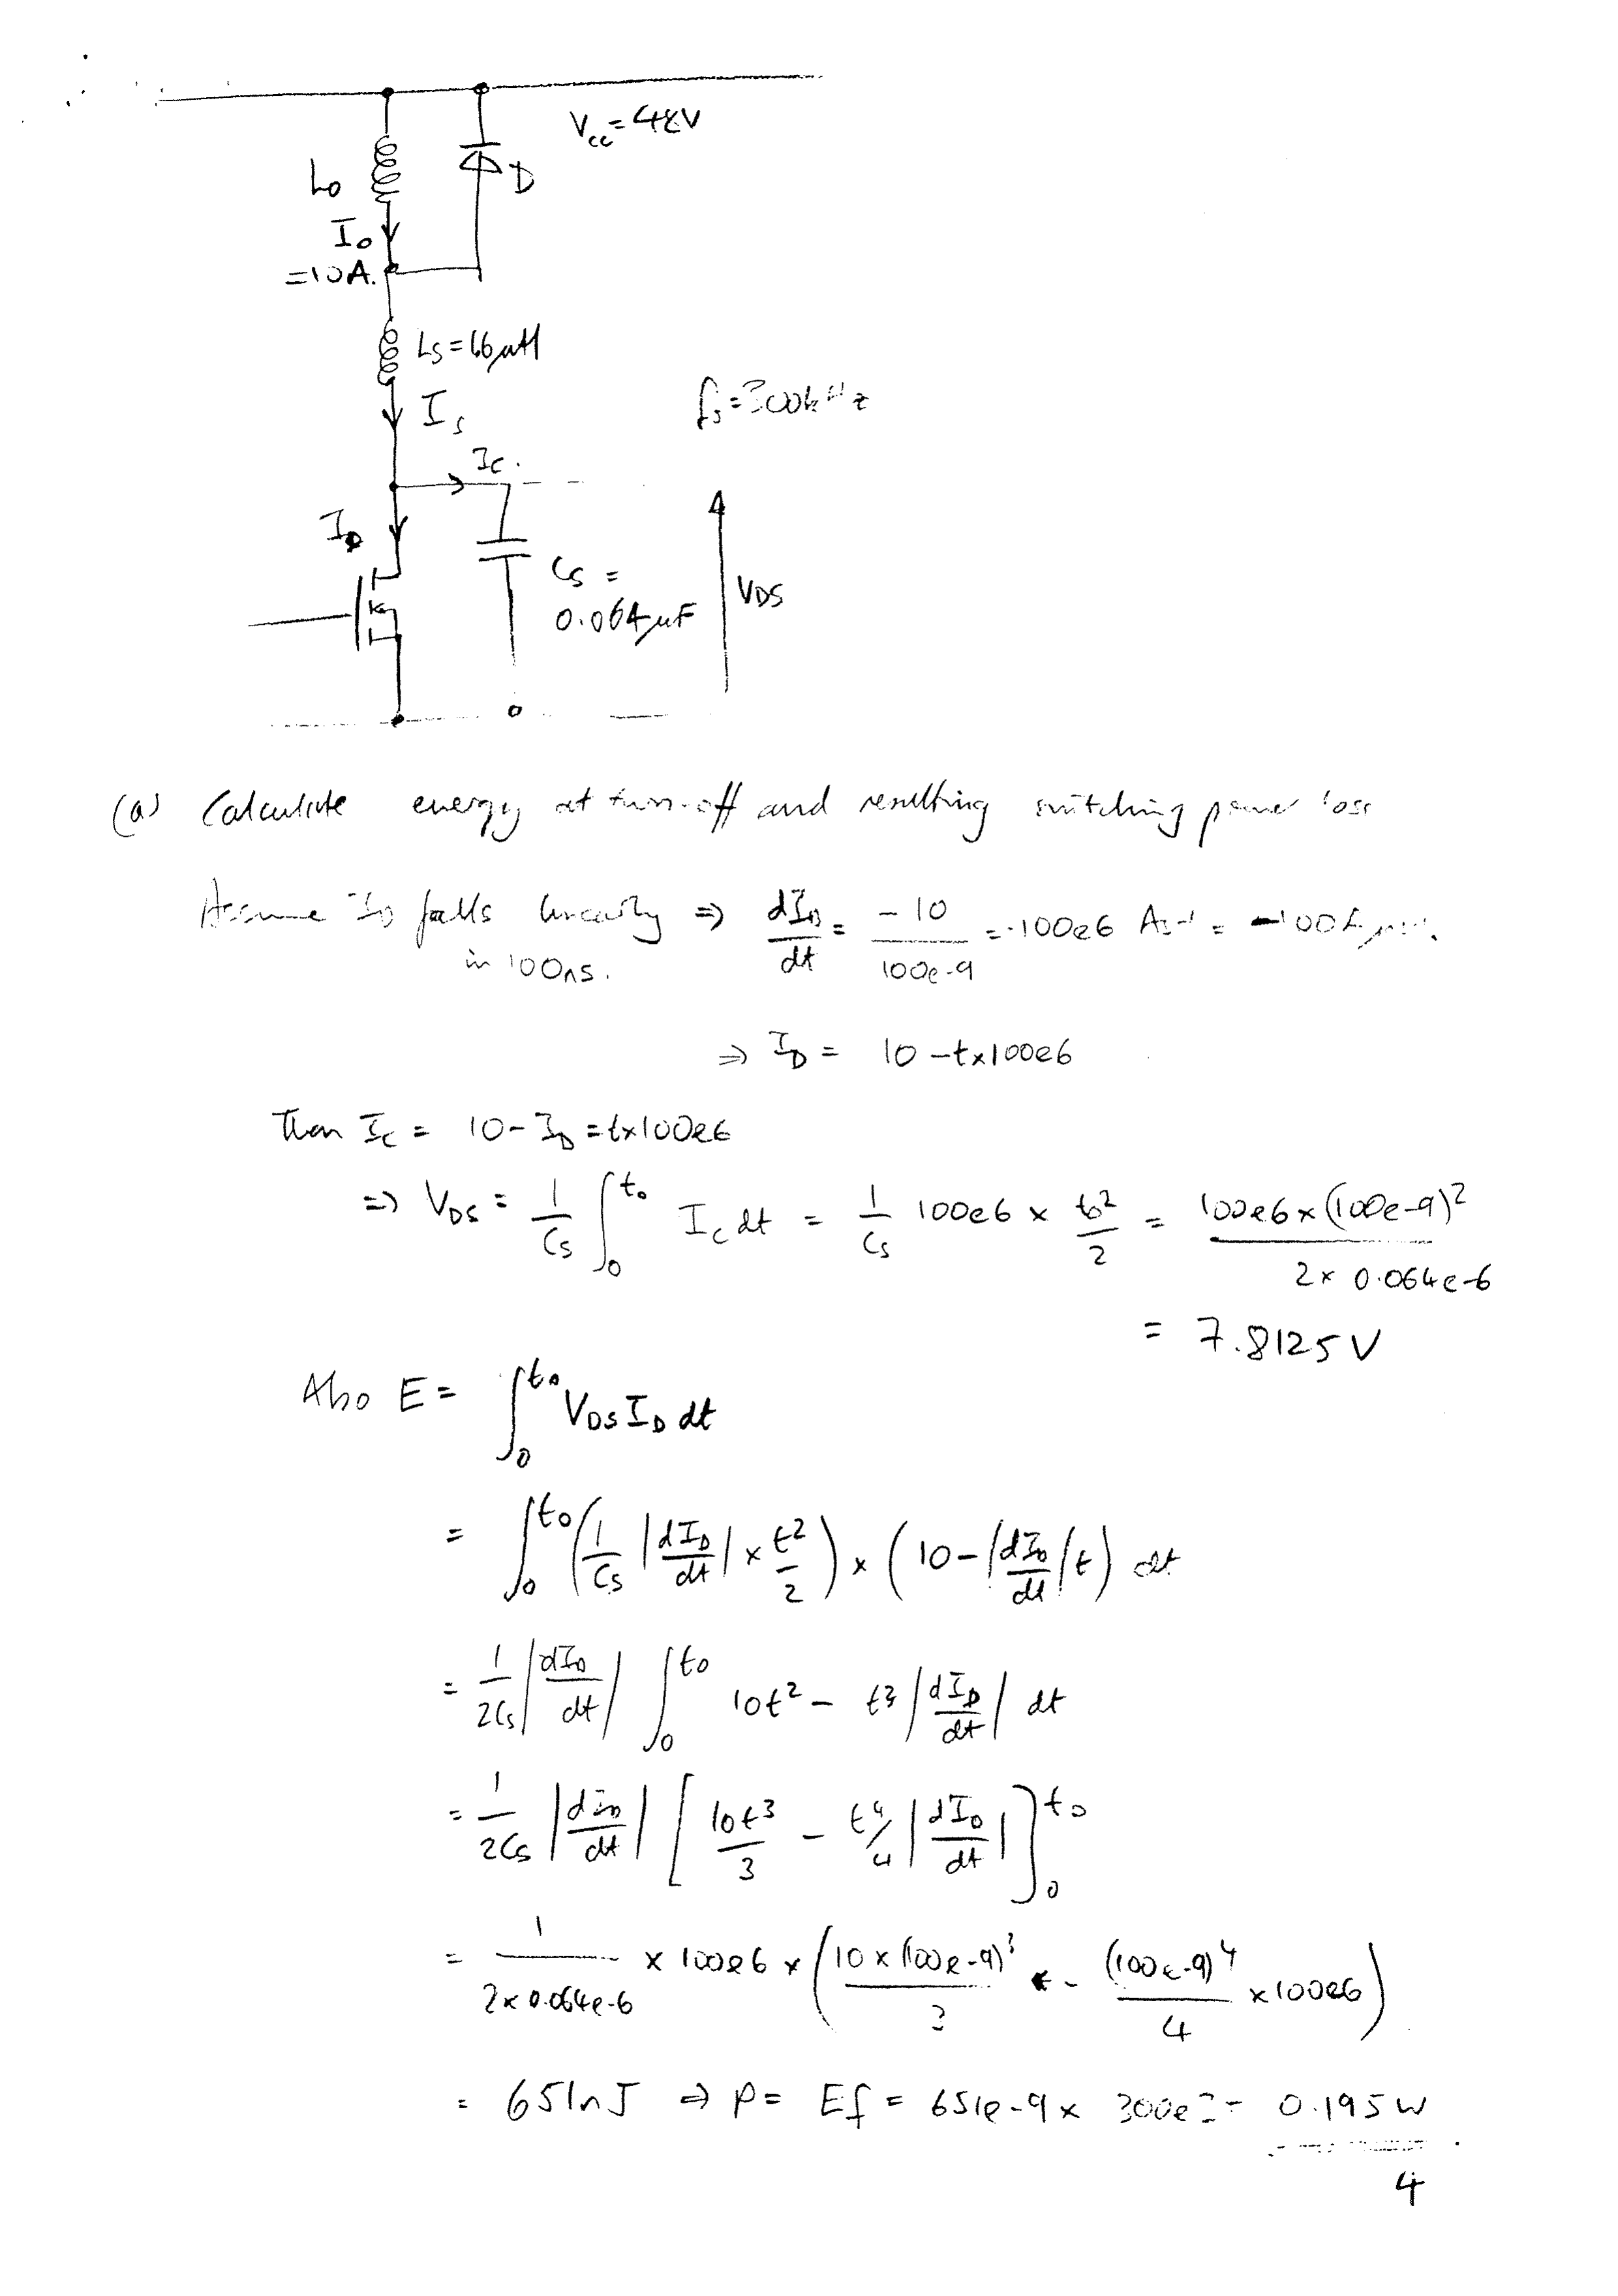 V_cc = 48V
L_o
D
I_o
=10A.
L_s = 1.6μH
I_s
f_s = 300kHz
I_c.
I_D
C_s =
0.064μF
V_DS
(a) Calculate energy at turn-off and resulting switching power loss
Assume I_D falls linearly ⇒ dI_D/dt = -10/100e-9 = -100e6 As-1 = -100A
in 100ns.
⇒ I_D = 10 - t×100e6
Then I_C = 10 - I_D = t×100e6
⇒ V_DS = 1/C_s ∫_0^t_o I_C dt = 1/C_s 100e6 × t_o²/2 = 100e6 × (100e-9)² / 2 × 0.064e-6
= 7.8125V
Also E = ∫_0^t_o V_DS I_D dt
= ∫_0^t_o (1/C_s |dI_D/dt| × t²/2) × (10 - |dI_D/dt| t) dt
= 1/2C_s |dI_D/dt| ∫_0^t_o 10t² - t³ |dI_D/dt| dt
= 1/2C_s |dI_D/dt| [10t³/3 - t⁴/4 |dI_D/dt|]_0^t_o
= 1/2×0.064e-6 × 100e6 × (10×(100e-9)³/3 - (100e-9)⁴/4 × 100e6)
= 651nJ ⇒ P = Ef = 651e-9 × 300e3 = 0.195W
4